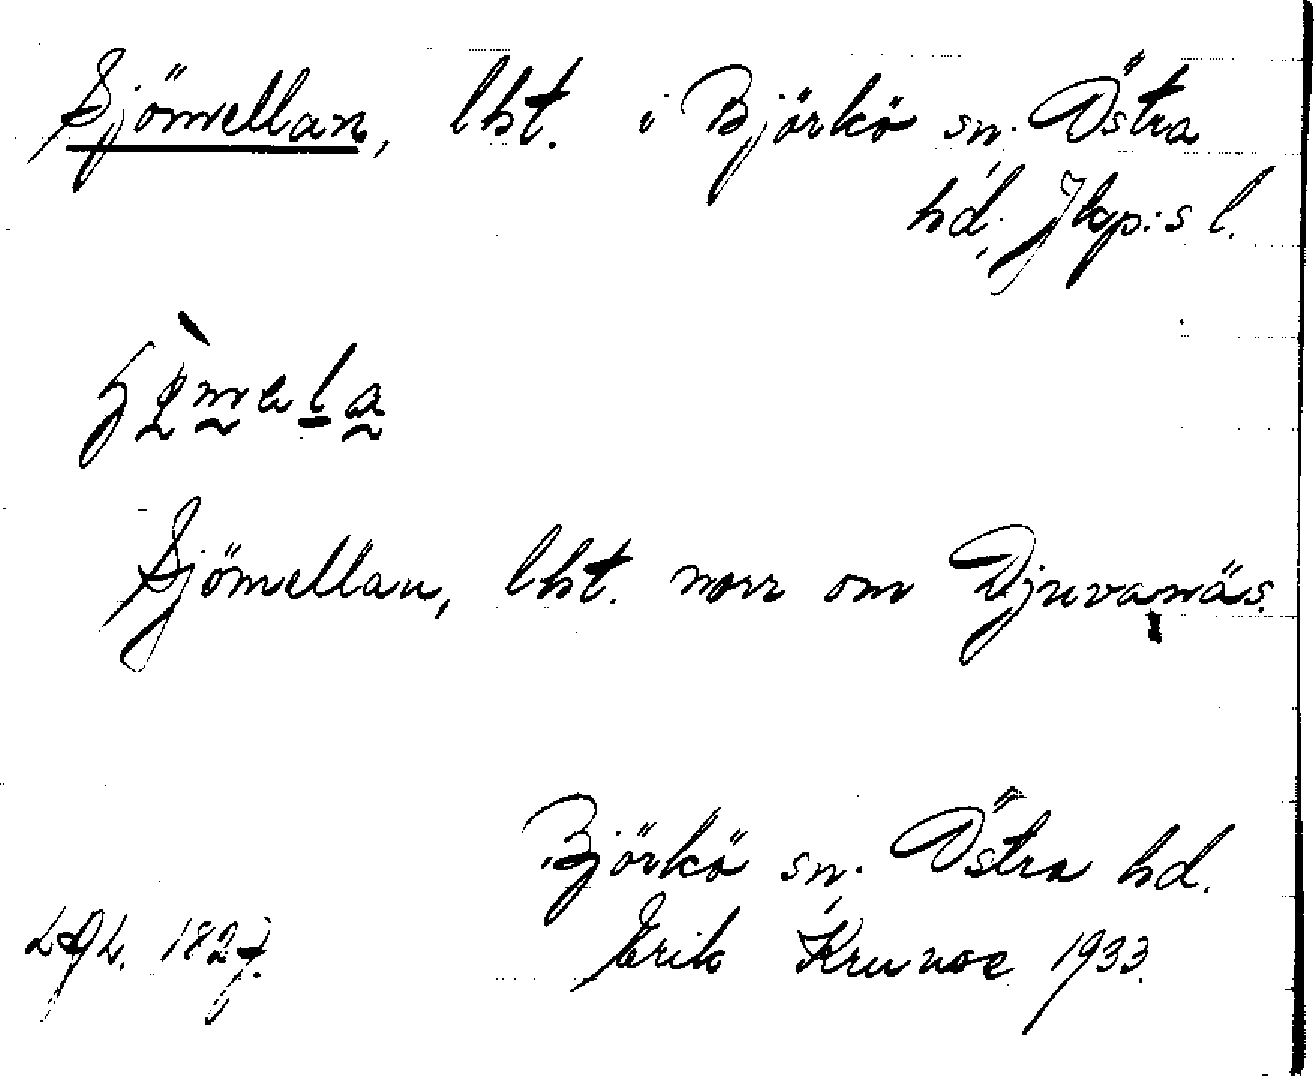 Sjömellan, lht. i Björkö sn. Östra
hd. Jkp:s l.
Sjömellan, lht. norr om Djuvanäs.
Björkö sn. Östra hd.
1827. Erik Krunoe 1933.